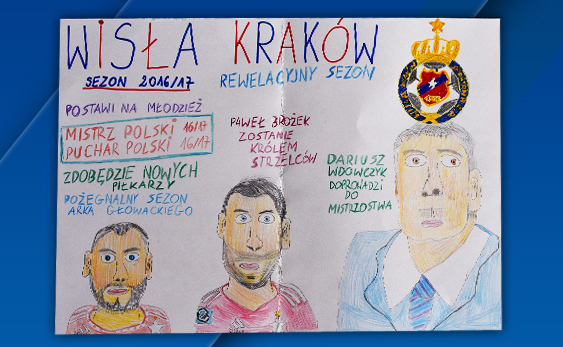 WISŁA KRAKÓW
SEZON 2016/17
REWELACYJNY SEZON
POSTAWI NA MŁODZIEŻ
MISTRZ POLSKI 16/17
PUCHAR POLSKI 16/17
ZDOBĘDZIE NOWYCH
PIŁKARZY
POŻEGNALNY SEZON
ARKA GŁOWACKIEGO
PAWEŁ BROŻEK
ZOSTANIE
KRÓLEM
STRZELCÓW
DARIUSZ
WDOWCZYK
DOPROWADZI
DO
MISTRZOSTWA